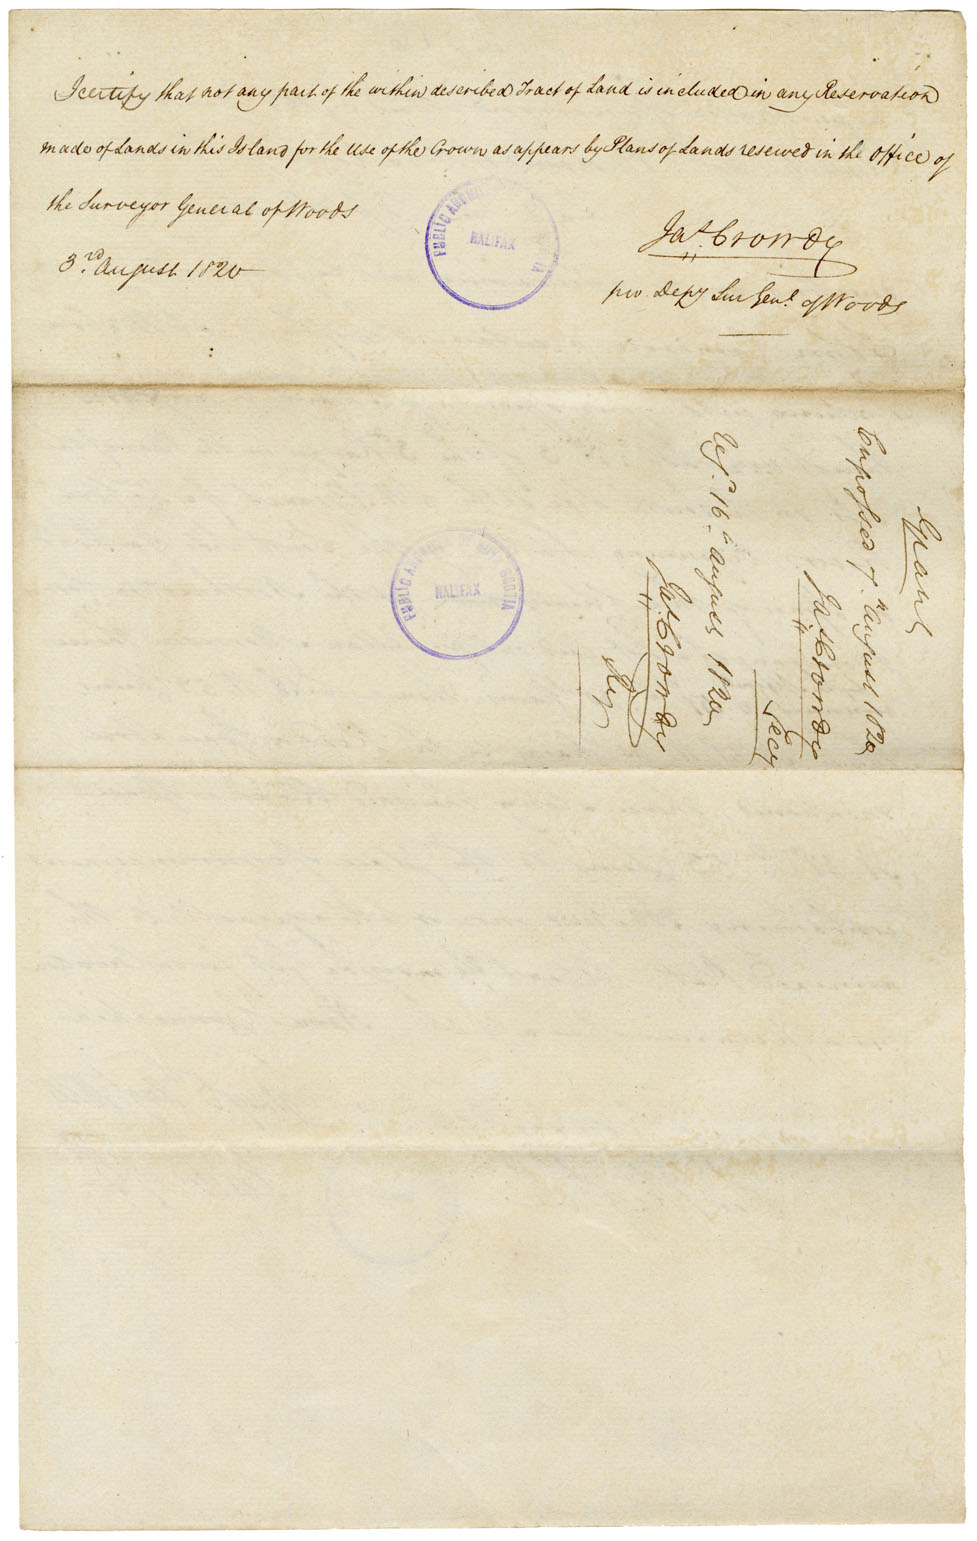 I certify that not any part of the within described Tract of Land is included in any Reservation
made of Lands in this Island for the Use of the Crown as appears by Plans of Lands reserved in the Office of
the Surveyor General of Woods
3rd. August 1820
Jas. Crowdy
pro. Depy Sur Genl. of Woods
PUBLIC SCOTIA
HALIFAX
Grant
Engrossed 7th August 1820
Jas. Crowdy
Secy
Reg.d 16th August 1820
Jas. Crowdy
Reg
PUBLIC SCOTIA
HALIFAX